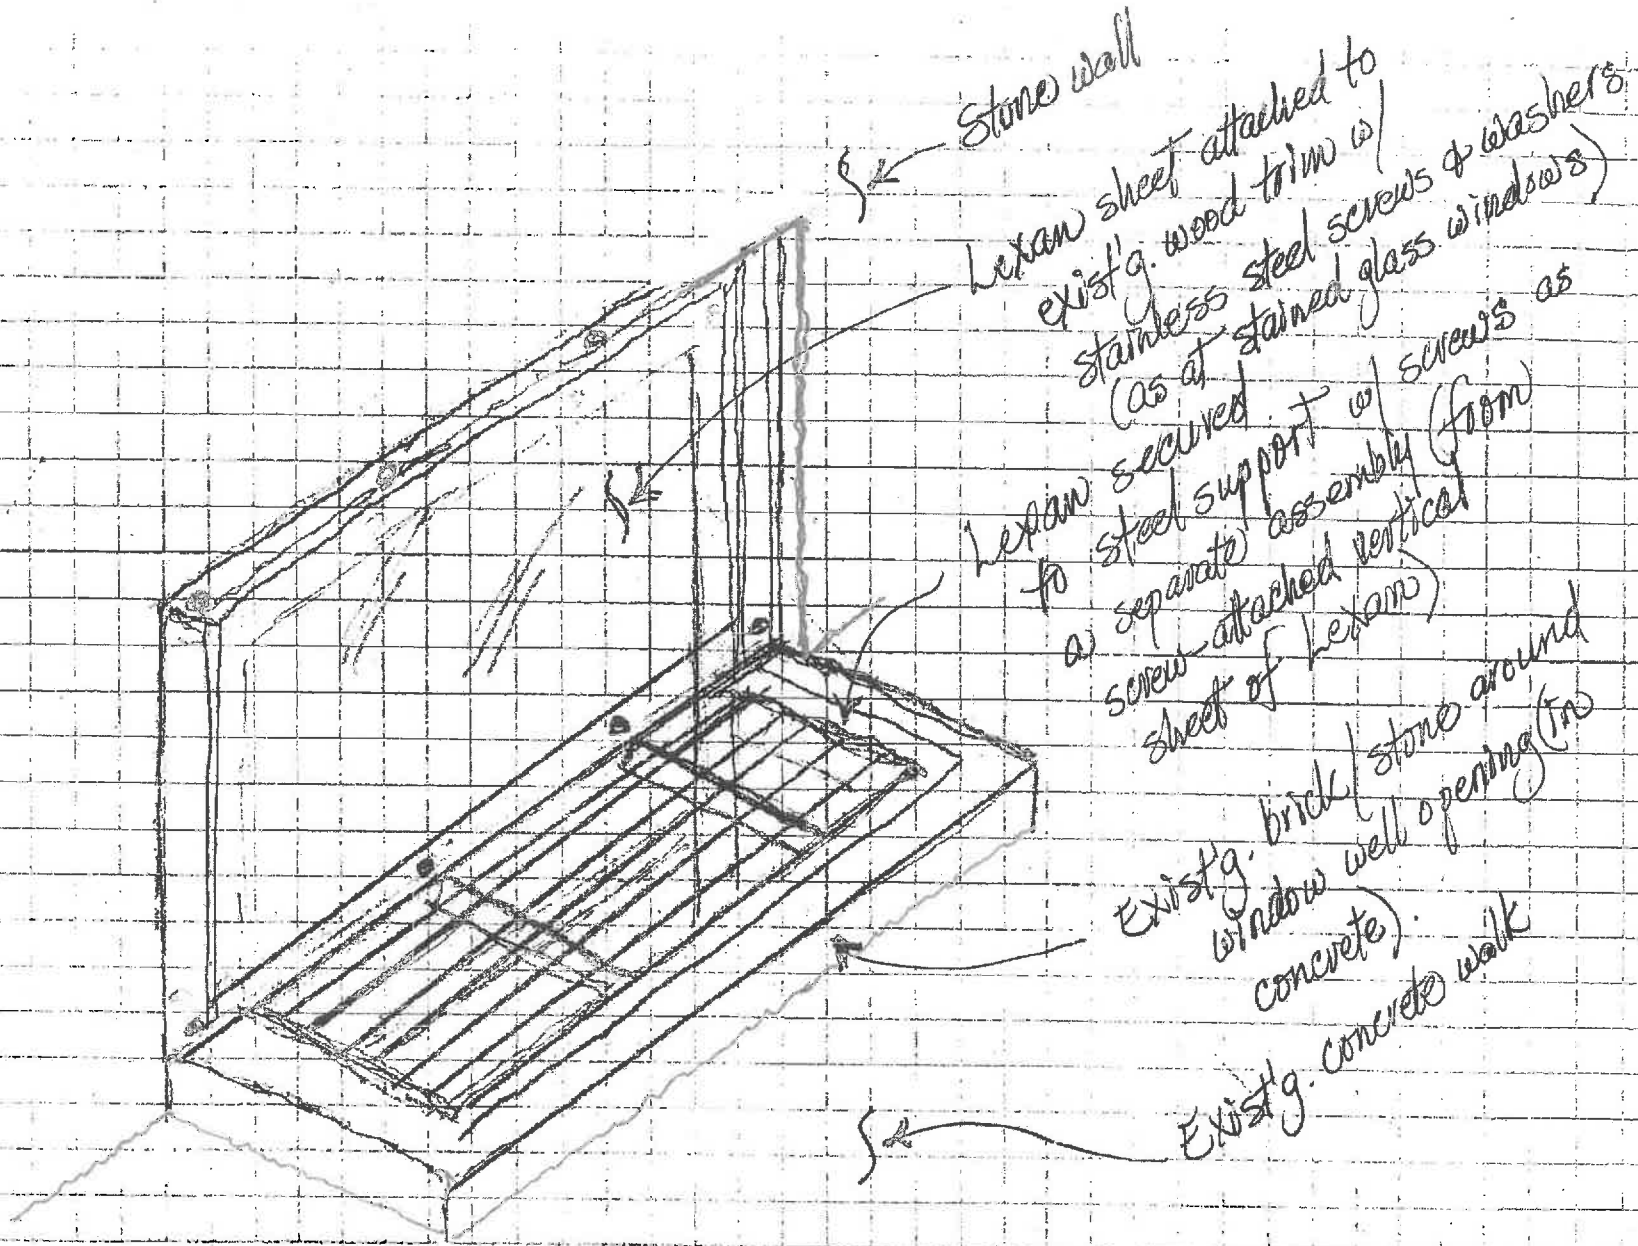 Stone wall
Lexan sheet attached to
exist'g. wood trim w/
stainless steel screws & washers
(as at stained glass windows)
Lexan secured
to steel support w/ screws as
a separate assembly (from
screw-attached vertical
sheet of Lexan)
Exist'g. brick/stone around
window well opening (in
concrete).
Exist'g. concrete walk